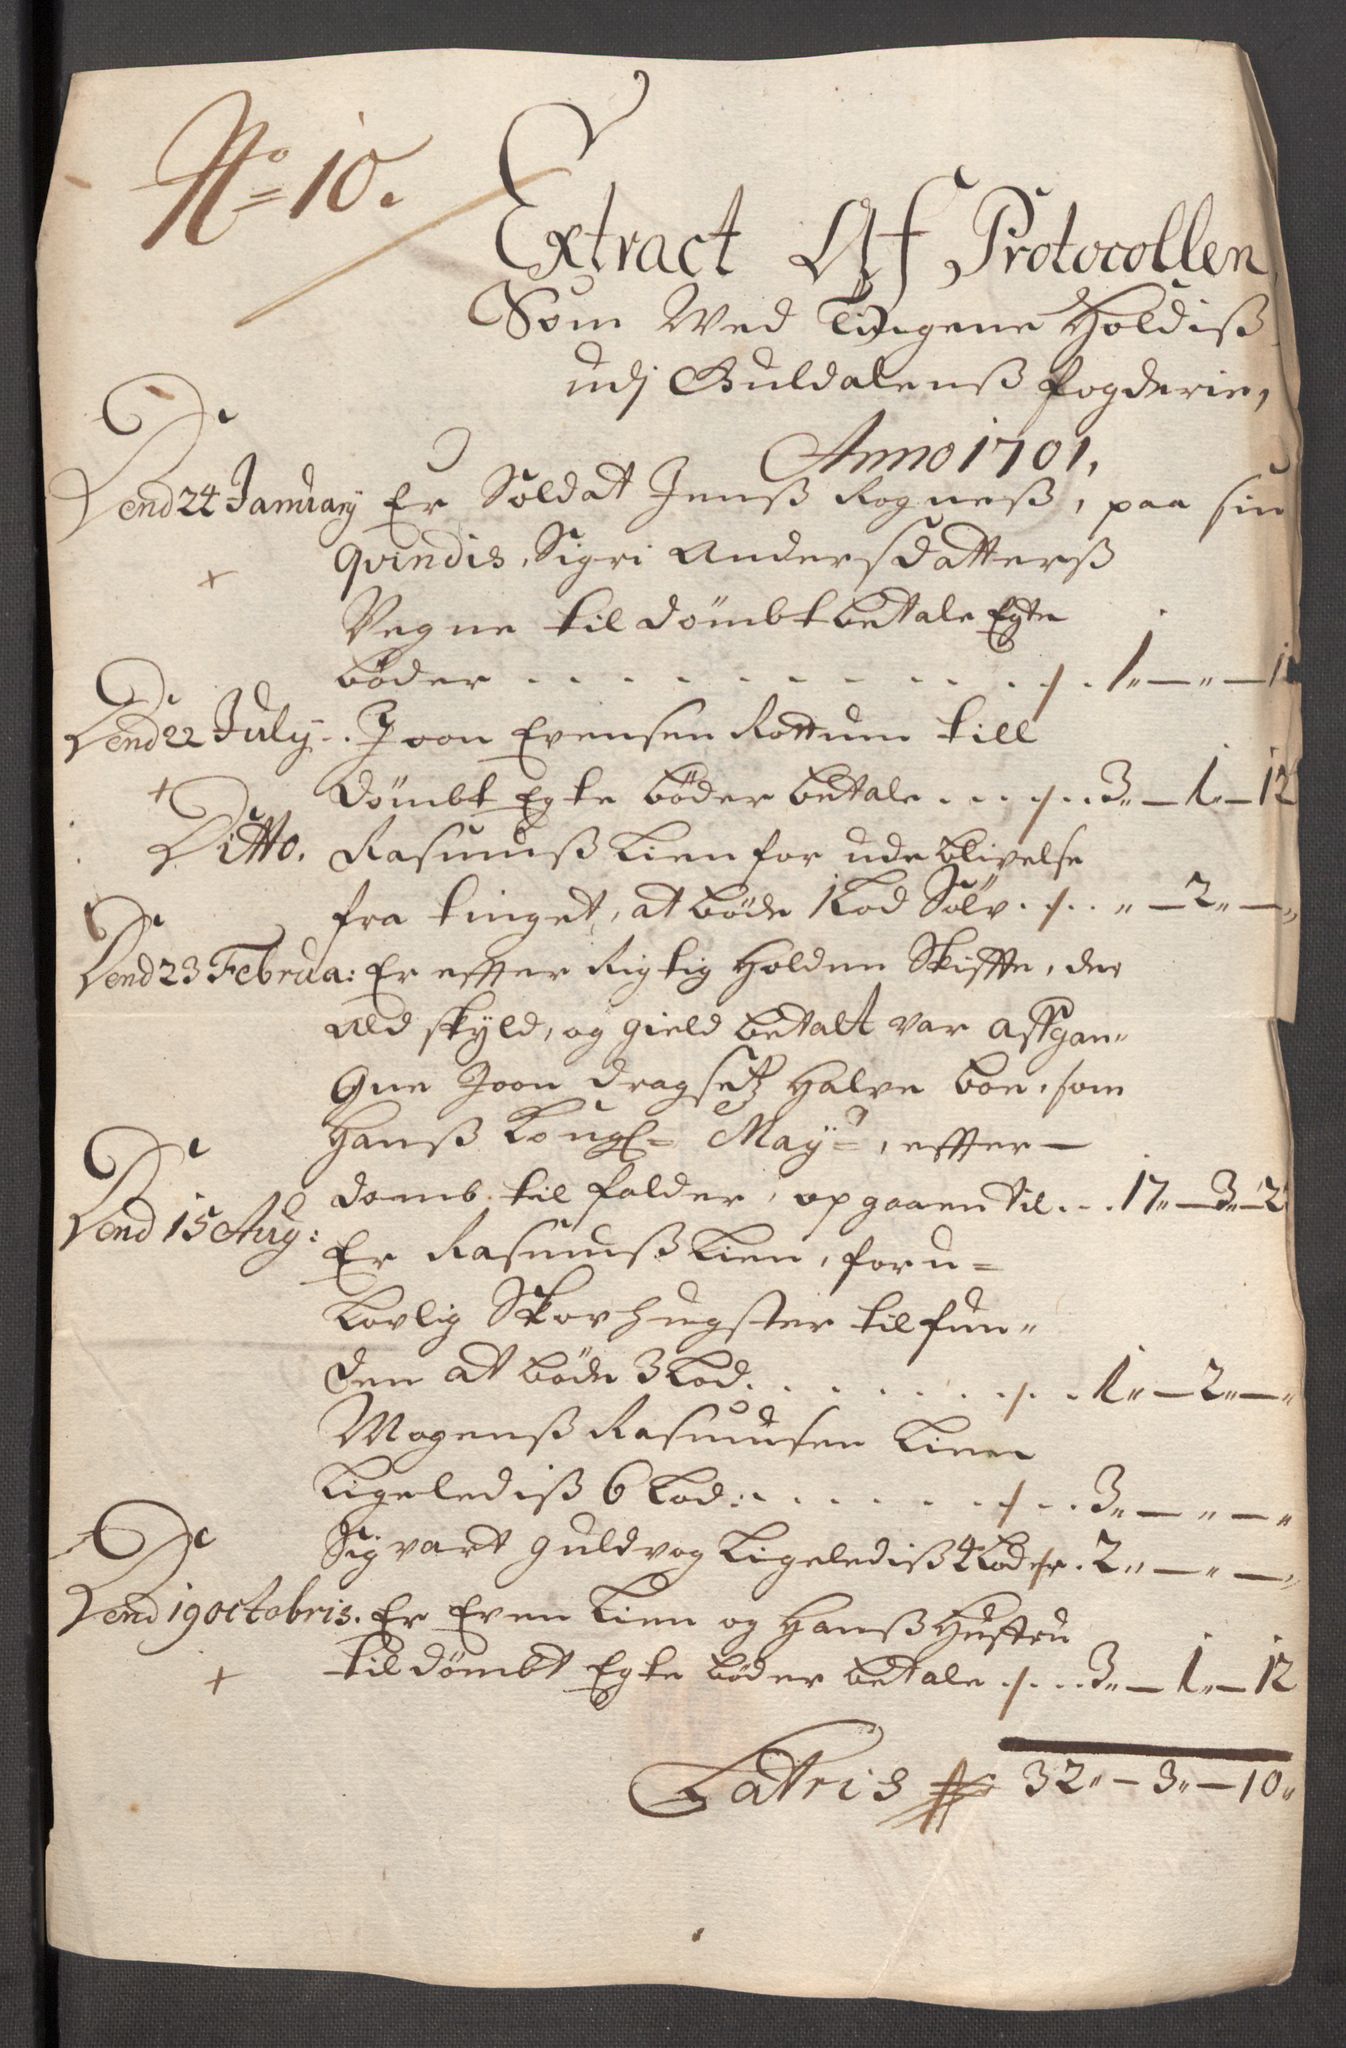 No 10.
Extract Af Protocollen
Som Wed Tingene Holdiß
udj Guldalenß Fogderie,
Anno 1701.
Dend 24 January Er Soldat Jenß Rogneß, paa sin
qvindis, Sigri Andersdatterß
Vegne til dömbt betale Egte
böder . . . . . . . . . . . ./. . 1„ — „ — 1
Dend 22 July . Joon Evensen Rottum till
dömbt Egte böder betale . . . ./. . 3„ — 1„ — 12
Ditto. Rasmuß Lien for ude blivelse
fra tinget, at böde 1 Lod Sölv . ./. . „ — 2„ — „
Dend 23 Februa: Er effter Rigtig Holden Skiffte, der
Ald skyld, og gield betalt var affgan„
gne Joon Dragsetz Halve boe, som
Hanß Kongl= Mayt=, effter —
domb til falder, opgaaen til . . . 17„ — 3„ — 2
Dend 15 Aug: Er Rasmuß Lien, for u=
Lovlig Skovhugster til fun„
den at böde 3 Lod . . . . . . . ./. . 1„ — 2„ — „
Mogenß Rasmusen Lien
Ligelediß 6 Lod: . . . . . . . ./. . 3„ — „ — „
Sigvart Guldvog Ligelediß 4 Lod ./. . 2„ — „ — „
Dend 19 octobris. Er Even Lien og Hanß Hustru
til dömbt Egte böder betale . ./. . . 3„ — 1„ — 12
Latris 32„ — 3„ — 10„